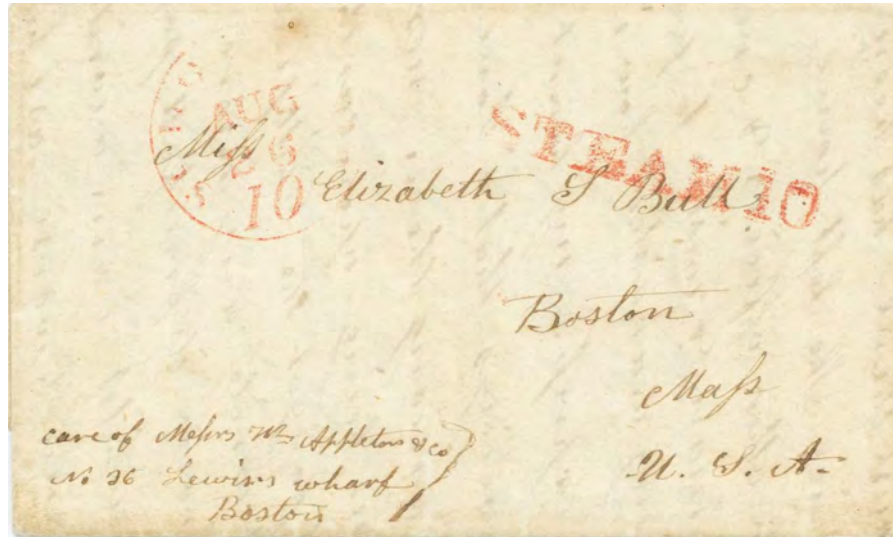 AUG
26
10
STEAM 10
Miss
Elizabeth S Bull
Boston
Mass
U. S. A.
care of Messrs Wm Appleton & co
No Lewiss wharf
Boston